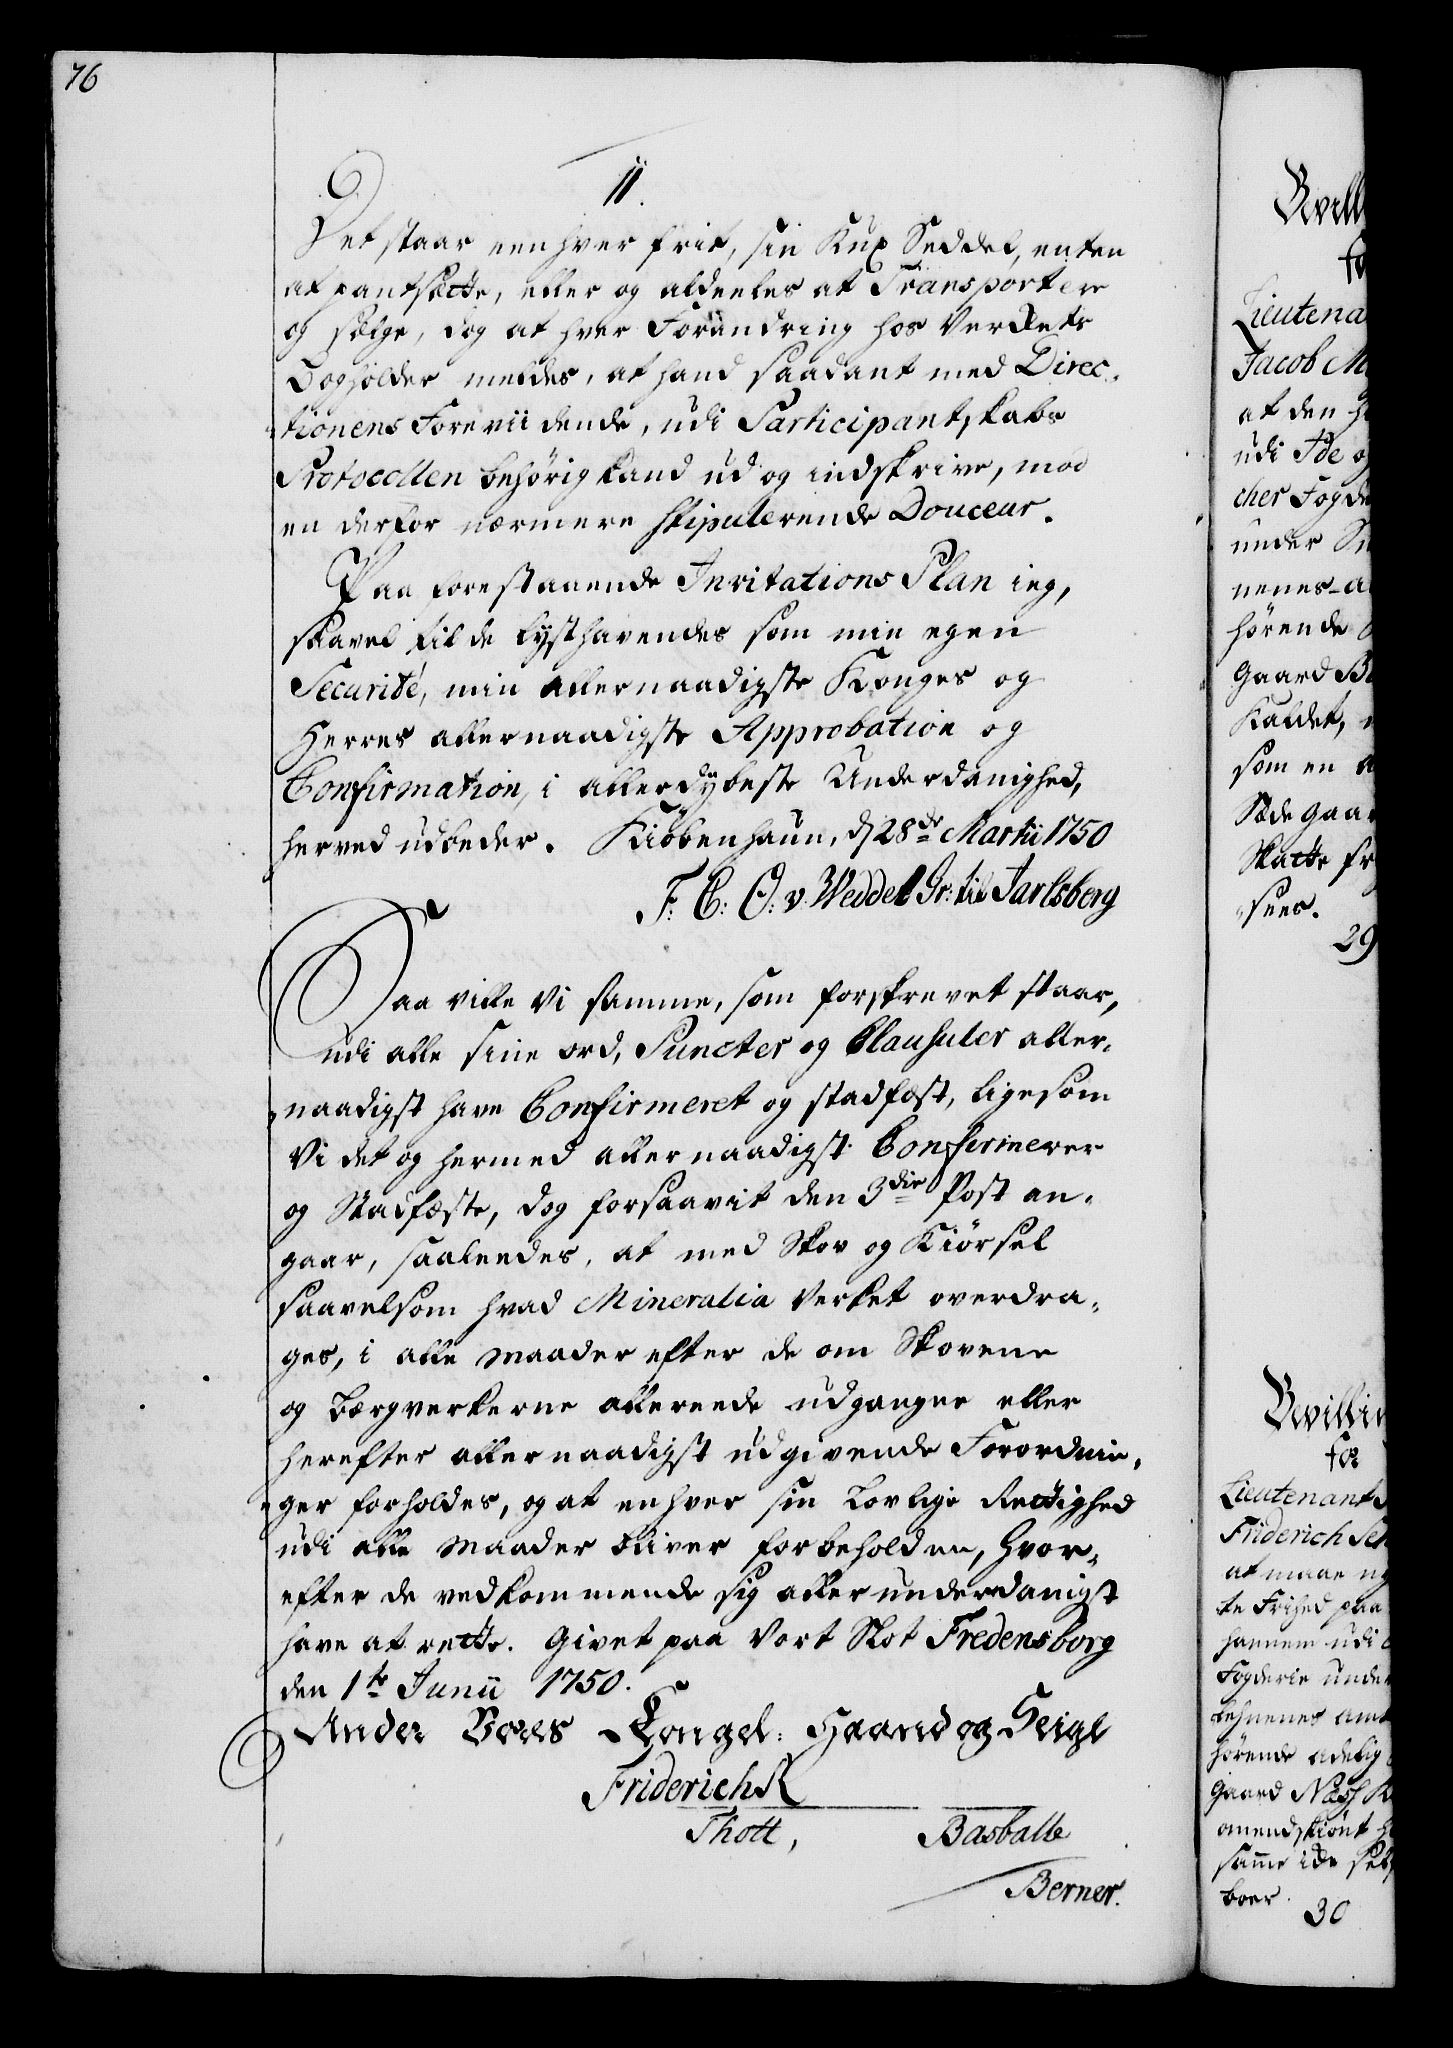 76
11.
Det staar een hver frit, sin Kux Seddel, enten
at pantsætte, eller og aldeeles at Transportere
og sælge, dog at hver Forandring hos Verkets
Bogholder meldes, at hand saadant med Direc-
tionens Forevidende, udi Participantskabs
Protocollen behörig kand ud og indskrive, mod
en derfor nærmere stipulerende Douceur.
Paa forestaaende Invitations Plan ieg,
saavel til de lysthavendes som min egen
Securité, min allernaadigste Konges og
Herres allernaadigste Approbation og
Confirmation, i allerdybeste Underdanighed,
herved udbeder. Kiöbenhaun, d 28de Martii 1750
F: C: O: v. Weddel Gr: til Jarlsberg
Saa ville Vi samme, som forskrevet staar,
udi alle sine ord, Puncter og Clausuler aller-
naadigst have Confirmeret og stadfæst, ligesom
Vi det og hermed allernaadigst Confirmerer
og Stadfæste, dog forsaavit den 3die Post an-
gaar, saaleedes, at med Skov og Kiörsel
saavelsom hvad Mineralia Verket overdra-
ges, i alle maader efter de om Skovene
og bergverkerne allereede udgangne eller
herefter allernaadigst udgivende Forordnin-
ger forholdes, og at enhver sin lovlige Rettighed
udi alle maader bliver forbeholden, Hvor-
efter de vedkommende sig allerunderdanigst
have at rette. Givet paa Vort Slot Fredensborg
den 1te Junii 1750.
Under Vores Kongel: Haand og Seigl
Friderich R
Thott, Basballe
Berner.
Bevill
fo
Lieutena
Jacob M
at den h
udi Ide o
cher Fogde
under Sm
nenes-a
hörende
Gaard B
Kaldet,
som en a
Sæde gaar
Skatte fr
sees.
29
Bevillin
for
Lieutenant
Friderich
at maae ny
te Frihed paa
hannem udi
Fogderie under
lehnenes amt
hörende adelig
Gaard Næss
omendskiönt
samme icke
boer.
30